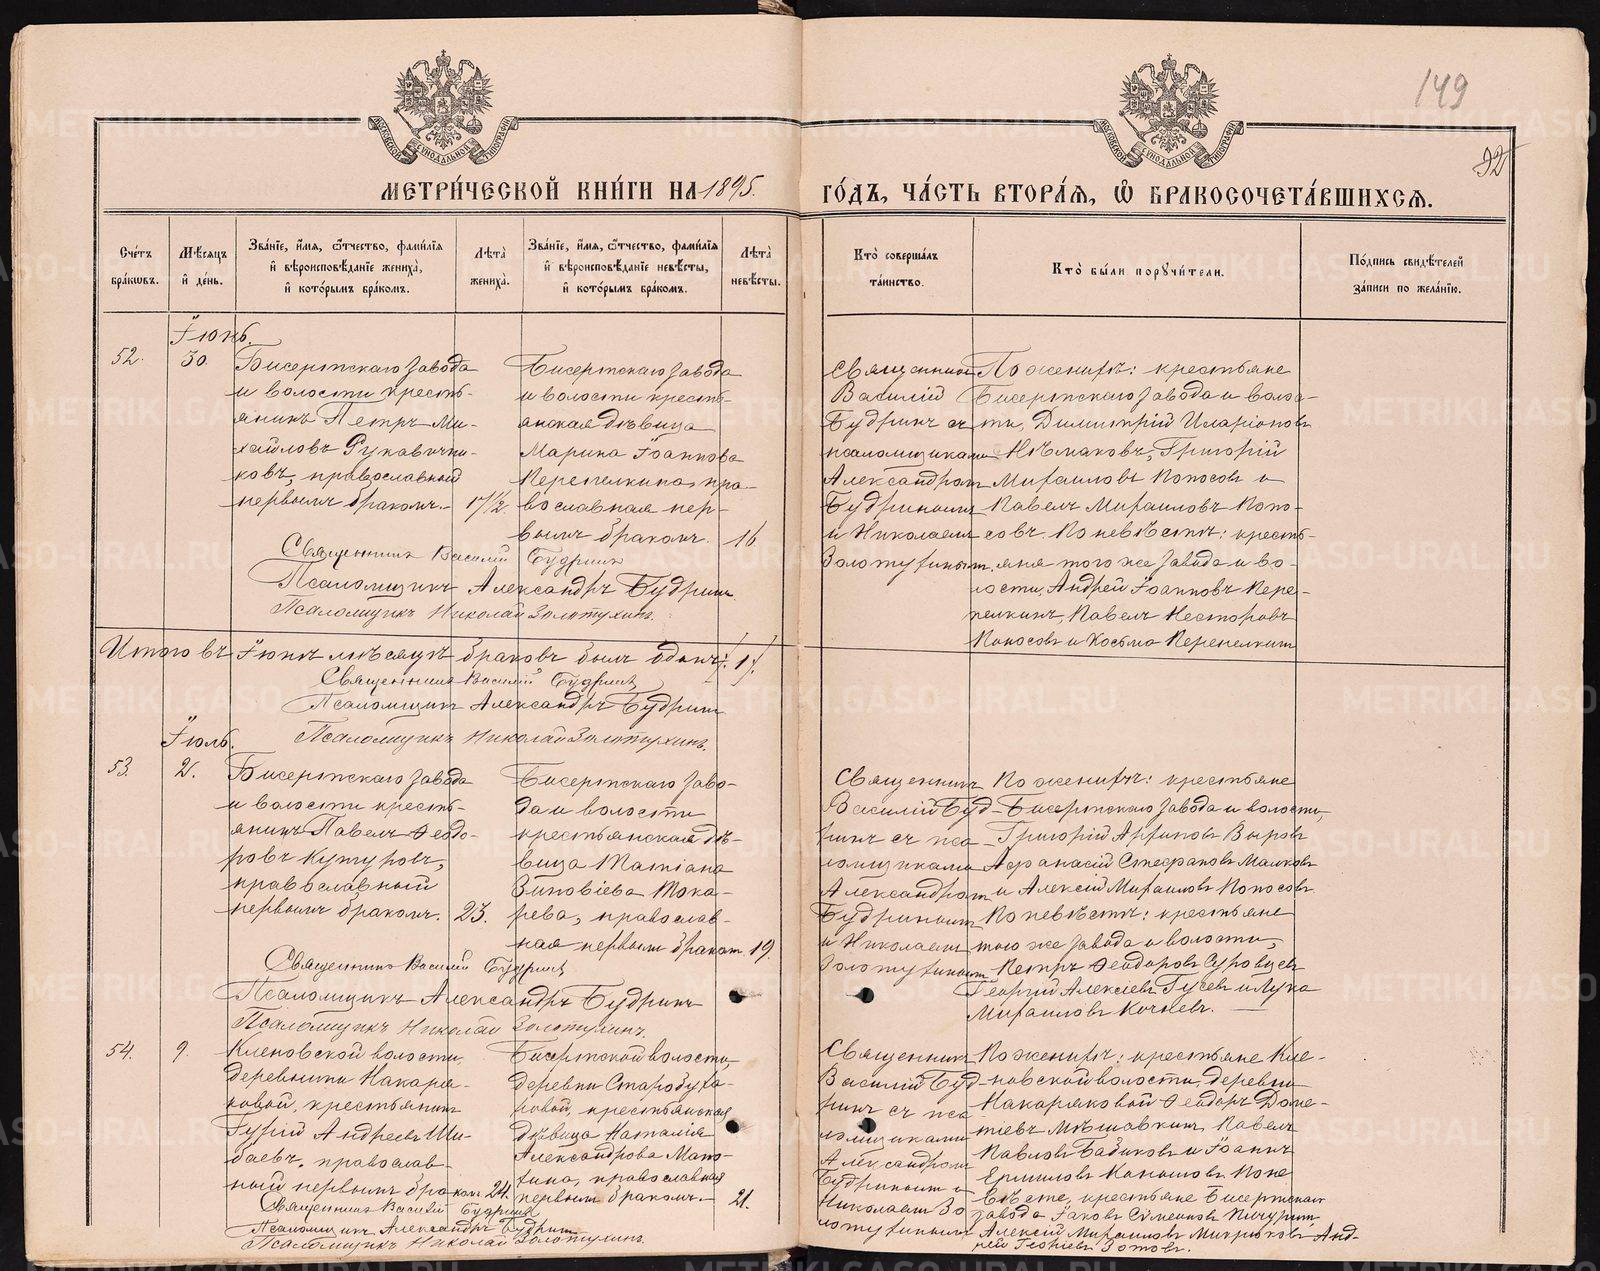 149
92
МЕТРИ́ЧЕСКОЙ КНИ́ГИ НА 1895.
ГО́ДЪ, ЧА́СТЬ ВТОРА́Я, Ѽ БРАКОСОЧЕТА́ВШИХСЯ.
Сче́тъ бра́кѡвъ.
Мѣ́сяцъ и де́нь.
Зва́нїе, и́мя, ѻ́тчество, фами́лїя и вѣроисповѣ́данїе жениха̀, и кото́рымъ бра́комъ.
Лѣта̀ жениха̀.
Зва́нїе, и́мя, ѻ́тчество, фами́лїя и вѣроисповѣ́данїе невѣ́сты, и кото́рымъ бра́комъ.
Лѣта̀ невѣ́сты.
Кто̀ соверша́лъ та́инство.
Кто̀ бы́ли порꙋчи́тели.
По́дпись свидѣ́телей за́писи по жела́нїю.
Іюнь.
52.
30.
Бисертскаго завода
и волости кресть-
янинъ Петръ Ми-
хайловъ Рукавични-
ковъ, православный
первымъ бракомъ.
17½.
Бисертскаго завода
и волости кресть-
янская дѣвица
Марина Іоаннова
Перепелкина, пра-
вославная пер-
вымъ бракомъ.
16
Священникъ
Василій
Будринъ съ
псаломщиками
Александромъ
Будринымъ
и Николаемъ
Золотухинымъ
По женихѣ: крестьяне
Бисертскаго завода и воло-
сти, Димитрій Иларіоновъ
Григорій
Михаиловъ Попосовъ и
Павелъ Михаиловъ Попо-
совъ. По невѣстѣ: кресть-
яне того же завода и во-
лости, Андрей Іоанновъ Пере-
пелкинъ, Павелъ Несторовъ
Попосовъ и Косьма Перепелкинъ
Священникъ Василій Будринъ
Псаломщикъ Александръ Будринъ
Псаломщикъ Николай Золотухинъ.
Итого въ Іюнѣ мѣсяцѣ браковъ былъ одинъ /1/.
Священникъ Василій Будринъ
Псаломщикъ Александръ Будринъ
Псаломщикъ Николай Золотухинъ.
Іюль.
53.
2.
Бисертскаго завода
и волости кресть-
янинъ Павелъ Ѳеодо-
ровъ Кутуровъ,
православный
первымъ бракомъ.
23.
Бисертскаго заво-
да и волости
крестьянская дѣ-
вица Татіана
Зиновіева Тока-
рева, православ-
ная первымъ бракомъ
19.
Священникъ
Василій Буд-
ринъ съ пса-
ломщиками
Александромъ
Будринымъ
и Николаемъ
Золотухинымъ
По женихѣ: крестьяне
Бисертскаго завода и волости,
Григорій
Аѳанасій Стефановъ
и Алексій Михаиловъ Попосовъ
По невѣстѣ: крестьяне
того же завода и волости,
Петръ Ѳеодоровъ Суровцевъ
Георгій Алексіевъ Гусевъ и Лука
Михаиловъ Кочневъ.
Священникъ Василій Будринъ
Псаломщикъ Александръ Будринъ
Псаломщикъ Николай Золотухинъ.
54.
9.
Кленовской волости,
деревни
крестьянинъ
Гурій Андреевъ Ши-
баевъ, православ-
ный первымъ бракомъ
24.
Бисертской волости,
деревни Старобуха-
ровой, крестьянская
дѣвица Наталія
Александрова
православная
первымъ бракомъ.
21.
Священникъ
Василій Буд-
ринъ съ пса-
ломщиками
Александромъ
Будринымъ и
Николаемъ Зо-
лотухинымъ
По женихѣ: крестьяне Кле-
новской волости, деревни
Накаряковой Ѳеодоръ
Павелъ
Павловъ и Іоаннъ
Ермиловъ По не-
вѣстѣ, крестьяне Бисертскаго
завода Іаковъ Симеоновъ Пичугинъ
Алексій Михаиловъ Анд-
рей Зотовъ.
Священникъ Василій Будринъ
Псаломщикъ Александръ Будринъ
Псаломщикъ Николай Золотухинъ.
METRIKI.GASO-URAL.RU